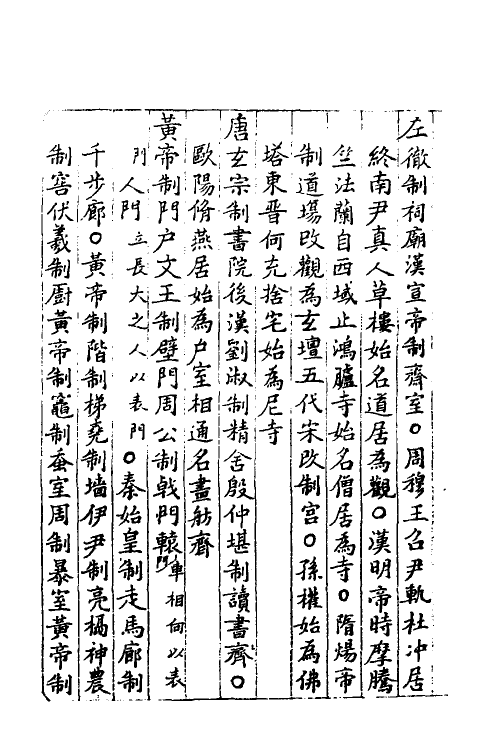 左徹制祠廟漢宣帝制齋室○周穆王召尹軌杜冲居
終南尹真人草樓始名道居為觀○漢明帝時摩騰
竺法蘭自西域止鴻臚寺始名僧居為寺○隋煬帝
制道場改觀為玄壇五代宋改制宫○孫權始為佛
塔東晋何充捨宅始為尼寺
唐玄宗制書院後漢劉淑制精舍殷仲堪制讀書齋○
歐陽脩燕居始為户室相通名畫舫齊
黃帝制門户文王制壁門周公制戟門轅門車相向以表
門人門立長大之人以表門○秦始皇制走馬廊制
千步廊○黃帝制階制梯堯制墻伊尹制亮槅神農
制窖伏羲制厨黃帝制竈制蚕室周制暴室黃帝制